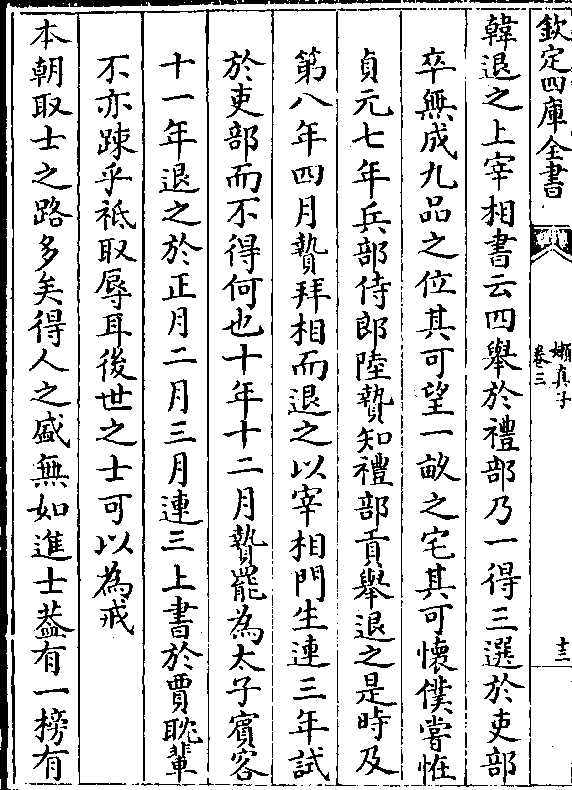 欽定四庫全書
嬾真子
卷三
十三
韓退之上宰相書云四舉於禮部乃一得三選於吏部
卒無成九品之位其可望一畝之宅其可懷僕嘗怪
貞元七年兵部侍郎陸贄知禮部貢舉退之是時及
第八年四月贄拜相而退之以宰相門生連三年試
於吏部而不得何也十年十二月贄罷為太子賓客
十一年退之於正月二月三月連三上書於賈耽輩
不亦踈乎祗取辱耳後世之士可以為戒
本朝取士之路多矣得人之盛無如進士葢有一榜有